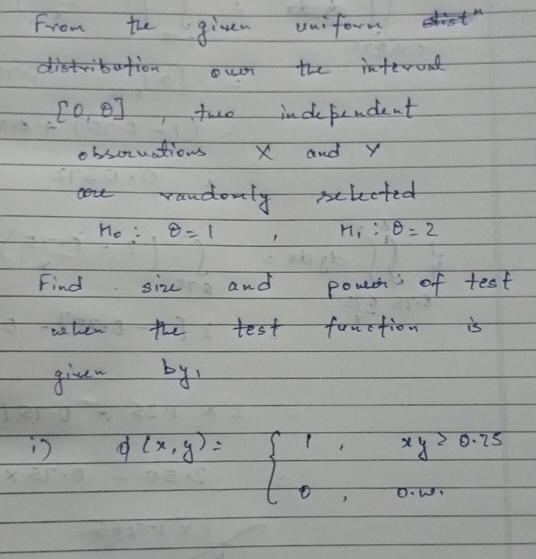 From the given uniform
distribution over the interval
[0, θ] , two independent
observations X and Y
are randomly selected
H₀ : θ = 1 , H₁ : θ = 2
Find size and power of test
when the test function is
given by,
i) φ(x, y) = { 1 , xy ≥ 0.75
0 , o.w.